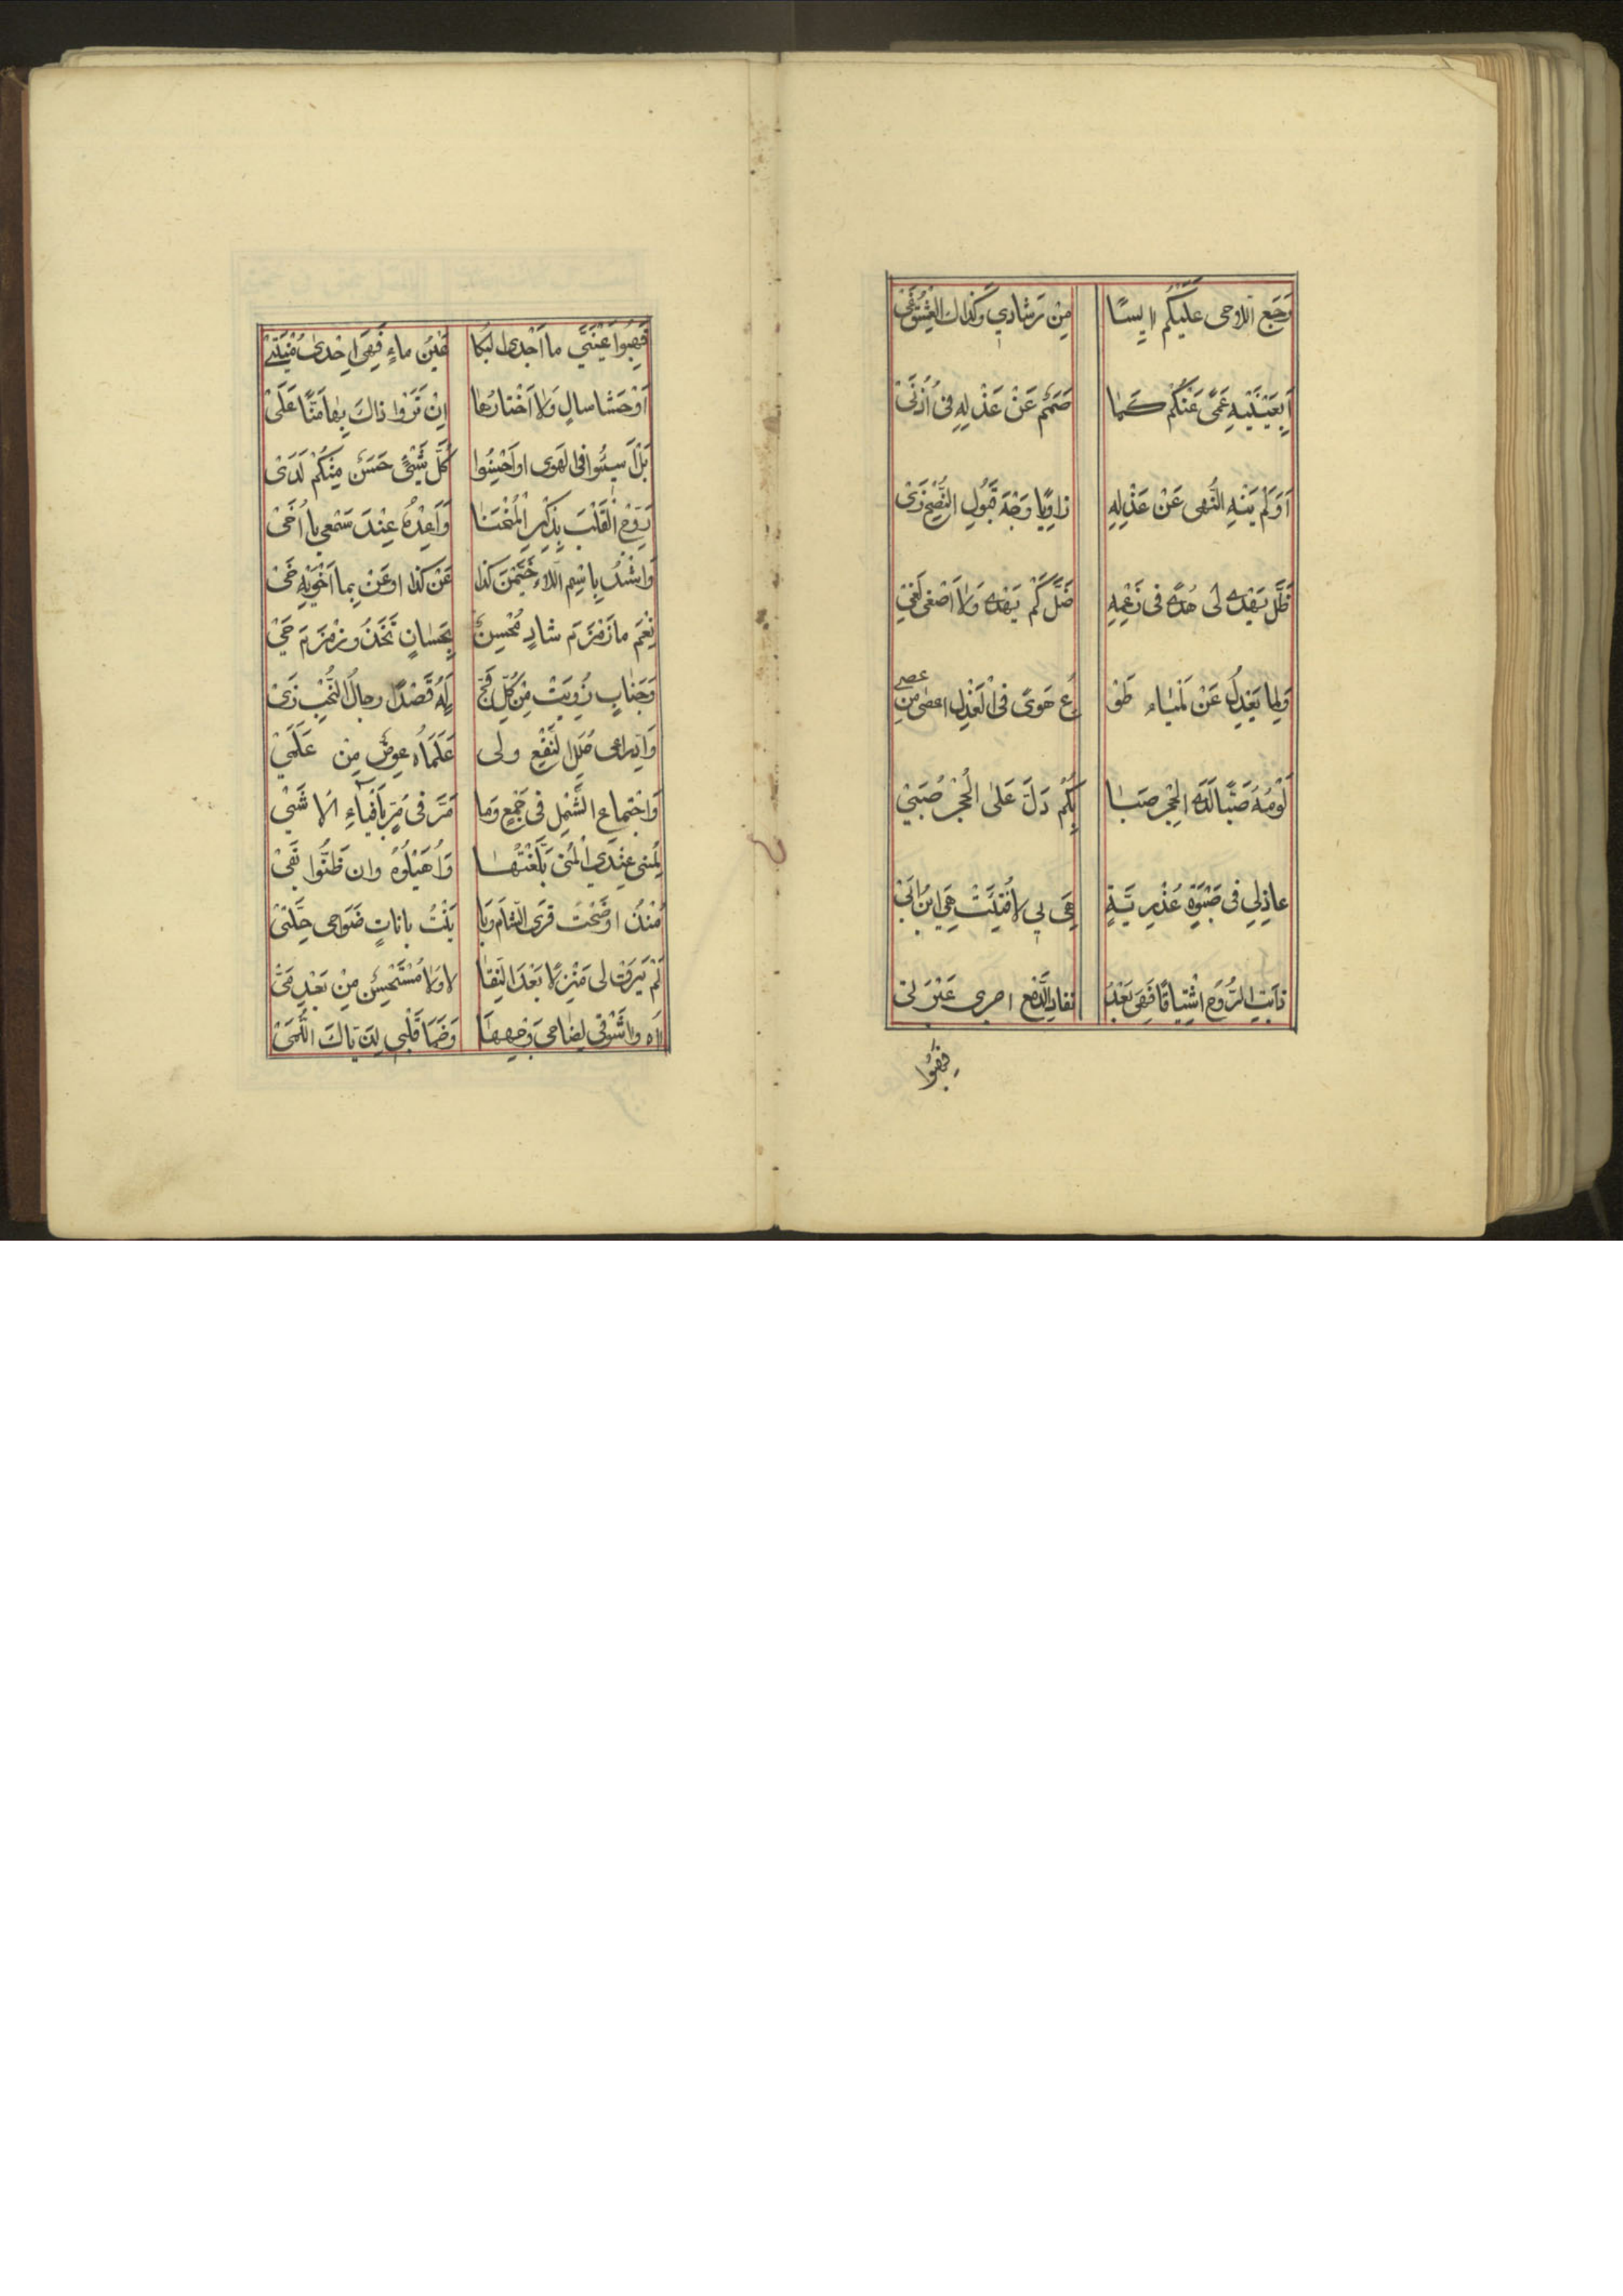 رَجَعَ اللّاحی عَلَیْکُم اٰیِسًا مِنْ رَشادِي وَکَذاكَ الْعِشْقُ غَیْ
اَبِعَیْنَیْهِ عَمًی عَنْکُمْ کَما صَمَمٌ عَنْ عَذْلِهِ فی اُذُنَیْ
اَوَلَمْ یَنْهَ النُّهی عَنْ عَذْلِهِ زاوِیًا وَجْهَ قَبُولِ النُّصْحِ زَیْ
ظَلَّ یَهْدی لی هُدًی فی زَعْمِهِ ضَلَّ کَمْ یَهْذی وَلا اَصْغی لِغَیْ
وَلِما یَعْذِلُ عَنْ لَمْیاءَ طَوْ عَ هَوًی فی الْعَذْلِ اعصی مِن
عصی
لَوْمُهُ صَبًّا لَدَی الْحِجْرِ صَبا بِکُمْ دَلَّ عَلیٰ حِجْرِ صُبَیْ
عاذِلی فی صَبْوَةٍ عُذْرِیَّةٍ هِیَ بی لا فُتِئَتْ هَیَّ ابْنُ بَیْ
ذابَتِ الرُّوحُ اشْتِیاقًا فَهِیَ بَعْدَ نَفادِ الدَّمْعِ اجری عَبْرَتَیْ
فَهِبُوا
فَهِبُوا عَیْنَیَّ ما اَجْدیٰ الْبُکا عَیْنَ ماءٍ فَهِیَ اِحْدیٰ مُنْیَتَیْ
اَوْ حَشا سالٍ وَلا اَخْتارُها اِنْ تَرَوْا ذاكَ بِها مَنًّا عَلَیْ
بَلْ اَسِیئُوا فی الْهَوی او اَحْسِنُوا کُلُّ شَیْئٍ حَسَنٌ مِنْکُمْ لَدَیْ
رَوِّحِ الْقَلْبَ بِذِکْرِ الْمُنْحَنیٰ وَاَعِدْهُ عِنْدَ سَمْعی یا اُخَیْ
وَاشْدُ بِاسْمِ اللّاءِ خَیَّمْنَ کَذا عَنْ کُدا اوعَنْ بِما اَحْوِیْهِ حَیْ
نِعْمَ ما زَمْزَمَ شادٍ مُحْسِنٌ بِحِسانٍ تَخِذُوا زَمْزَمَ جَیْ
وَجَنابٍ زُوِیَتْ مِنْ کُلِّ فَجٍّ لَهُ قَصْدًا رِجالُ النُّجْبِ زَیْ
وَادِّراعی حُلَلَ النَّقْعِ ولی عَلَمَاهُ عِوَضٌ مِنْ عَلَمَیْ
وَاجْتِماعِ الشَّمْلِ فی جَمْعٍ وَما مَرَّ فی مَرٍّ بِاَفْیاءِ الْاُشَیْ
لَمِنی عِنْدِيَ الْمُنی بُلِّغْتُهٰا وَاُهَیْلُوهُ وان ضَنُّوا بِفَیْ
مُنْذُ اوْضَحْتُ قُرَی الشّامِ وَبا یَنْتُ باناتٍ ضَواحی حِلَّتَیْ
لَمْ یَرُقْ لی مَنْزِلٌ بَعْدَ النَّقا لا وَلا مُسْتَحْسَنٌ مِنْ بَعْدِ مَیْ
اٰهِ وا شَوْقی لِضاحی وَجْهِها وَظَما قَلْبی لِذَیّاكَ اللُّمَیْ